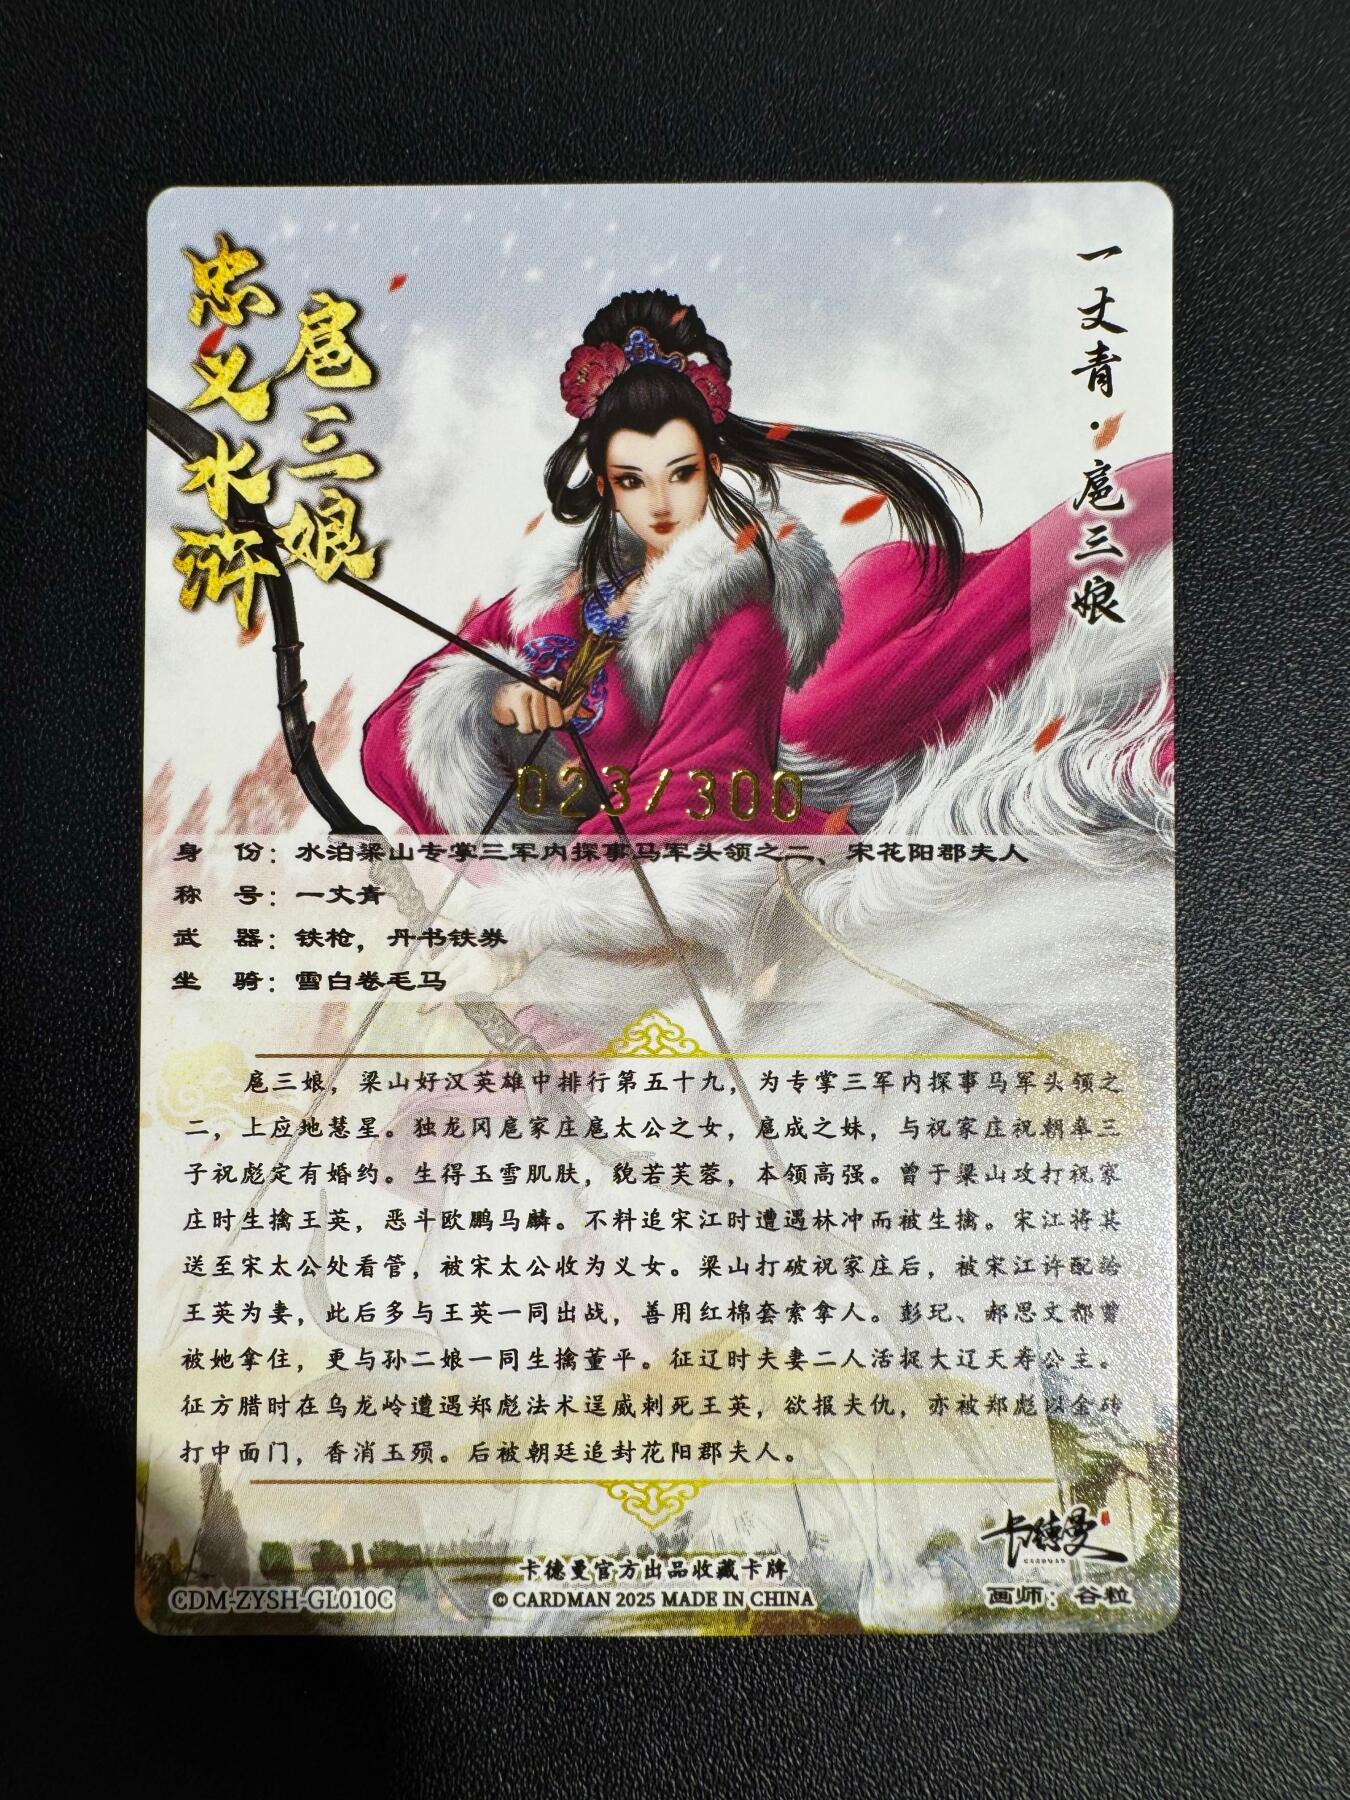 忠义水浒
扈三娘
一丈青·扈三娘
023/300
身 份：水泊梁山专掌三军内探事马军头领之二、宋花阳郡夫人
称 号：一丈青
武 器：铁枪，丹书铁券
坐 骑：雪白卷毛马
扈三娘，梁山好汉英雄中排行第五十九，为专掌三军内探事马军头领之
二，上应地慧星。独龙冈扈家庄扈太公之女，扈成之妹，与祝家庄祝朝奉三
子祝彪定有婚约。生得玉雪肌肤，貌若芙蓉，本领高强。曾于梁山攻打祝家
庄时生擒王英，恶斗欧鹏马麟。不料追宋江时遭遇林冲而被生擒。宋江将其
送至宋太公处看管，被宋太公收为义女。梁山打破祝家庄后，被宋江许配给
王英为妻，此后多与王英一同出战，善用红棉套索拿人。彭玘、郝思文都曾
被她拿住，更与孙二娘一同生擒董平。征辽时夫妻二人活捉大辽天寿公主。
征方腊时在乌龙岭遭遇郑彪法术逞威刺死王英，欲报夫仇，亦被郑彪以金砖
打中面门，香消玉殒。后被朝廷追封花阳郡夫人。
卡德曼
CARDMAN
卡德曼官方出品收藏卡牌
CDM-ZYSH-GL010C
© CARDMAN 2025 MADE IN CHINA
画师：谷粒